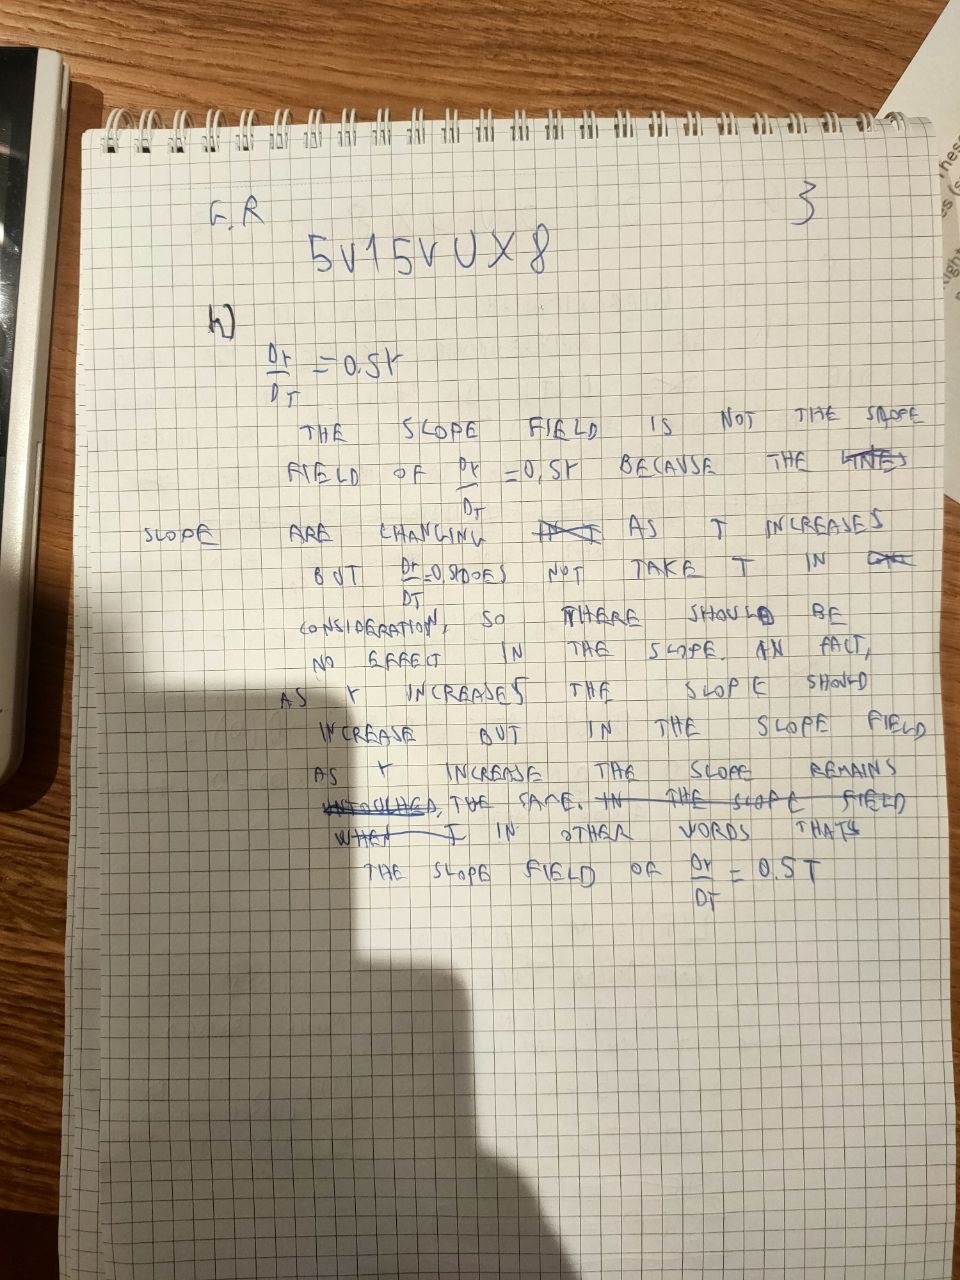 G.R
3
5V15VUX8
h)
Dr
DT
=0.5r
THE SLOPE FIELD IS NOT THE SLOPE
FIELD OF Dr/DT =0,5r BECAUSE THE LINES
SLOPE ARE CHANGING AS T INCREASES
BUT Dr/DT=0,5r DOES NOT TAKE T IN
CONSIDERATION, SO THERE SHOULD BE
NO EFFECT IN THE SLOPE. IN FACT,
AS r INCREASES THE SLOPE SHOULD
INCREASE BUT IN THE SLOPE FIELD
AS r INCREASE THE SLOPE REMAINS
UNTOUCHED, THE SAME. IN THE SLOPE FIELD
WHEN T IN OTHER WORDS THATS
THE SLOPE FIELD OF Dr/DT = 0.5T
hese
s (s
ight